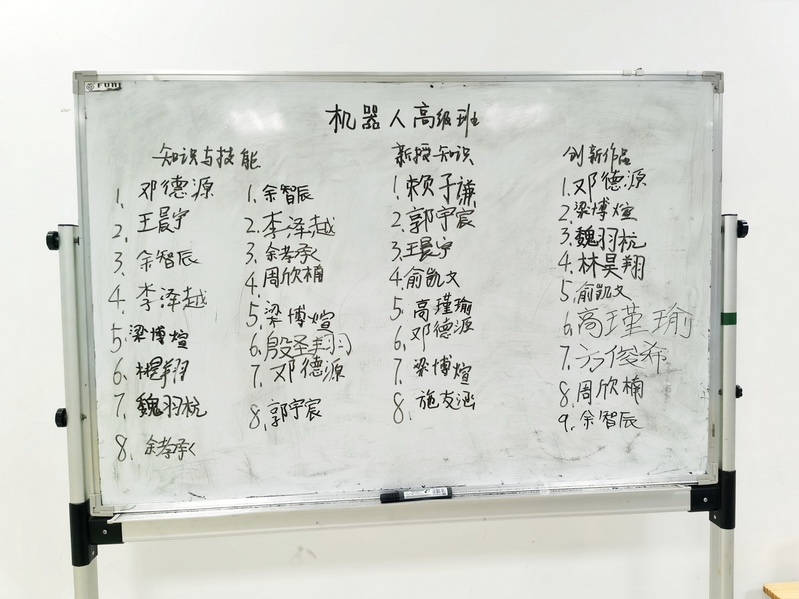 机器人高级班
知识与技能
1. 邓德源
2. 王晨宇
3. 余智辰
4. 李泽越
5. 梁博煊
6. 翔
7. 魏羽杭
8. 余孝承
1. 余智辰
2. 李泽越
3. 余孝承
4. 周欣楠
5. 梁博煊
6. 殷圣翔
7. 邓德源
8. 郭宇宸
新授知识
1. 赖子谦
2. 郭宇宸
3. 王晨宇
4. 俞凯文
5. 高瑾瑜
6. 邓德源
7. 梁博煊
8. 施友涵
创新作品
1. 邓德源
2. 梁博煊
3. 魏羽杭
4. 林昊翔
5. 俞凯文
6. 高瑾瑜
7. 方俊希
8. 周欣楠
9. 余智辰